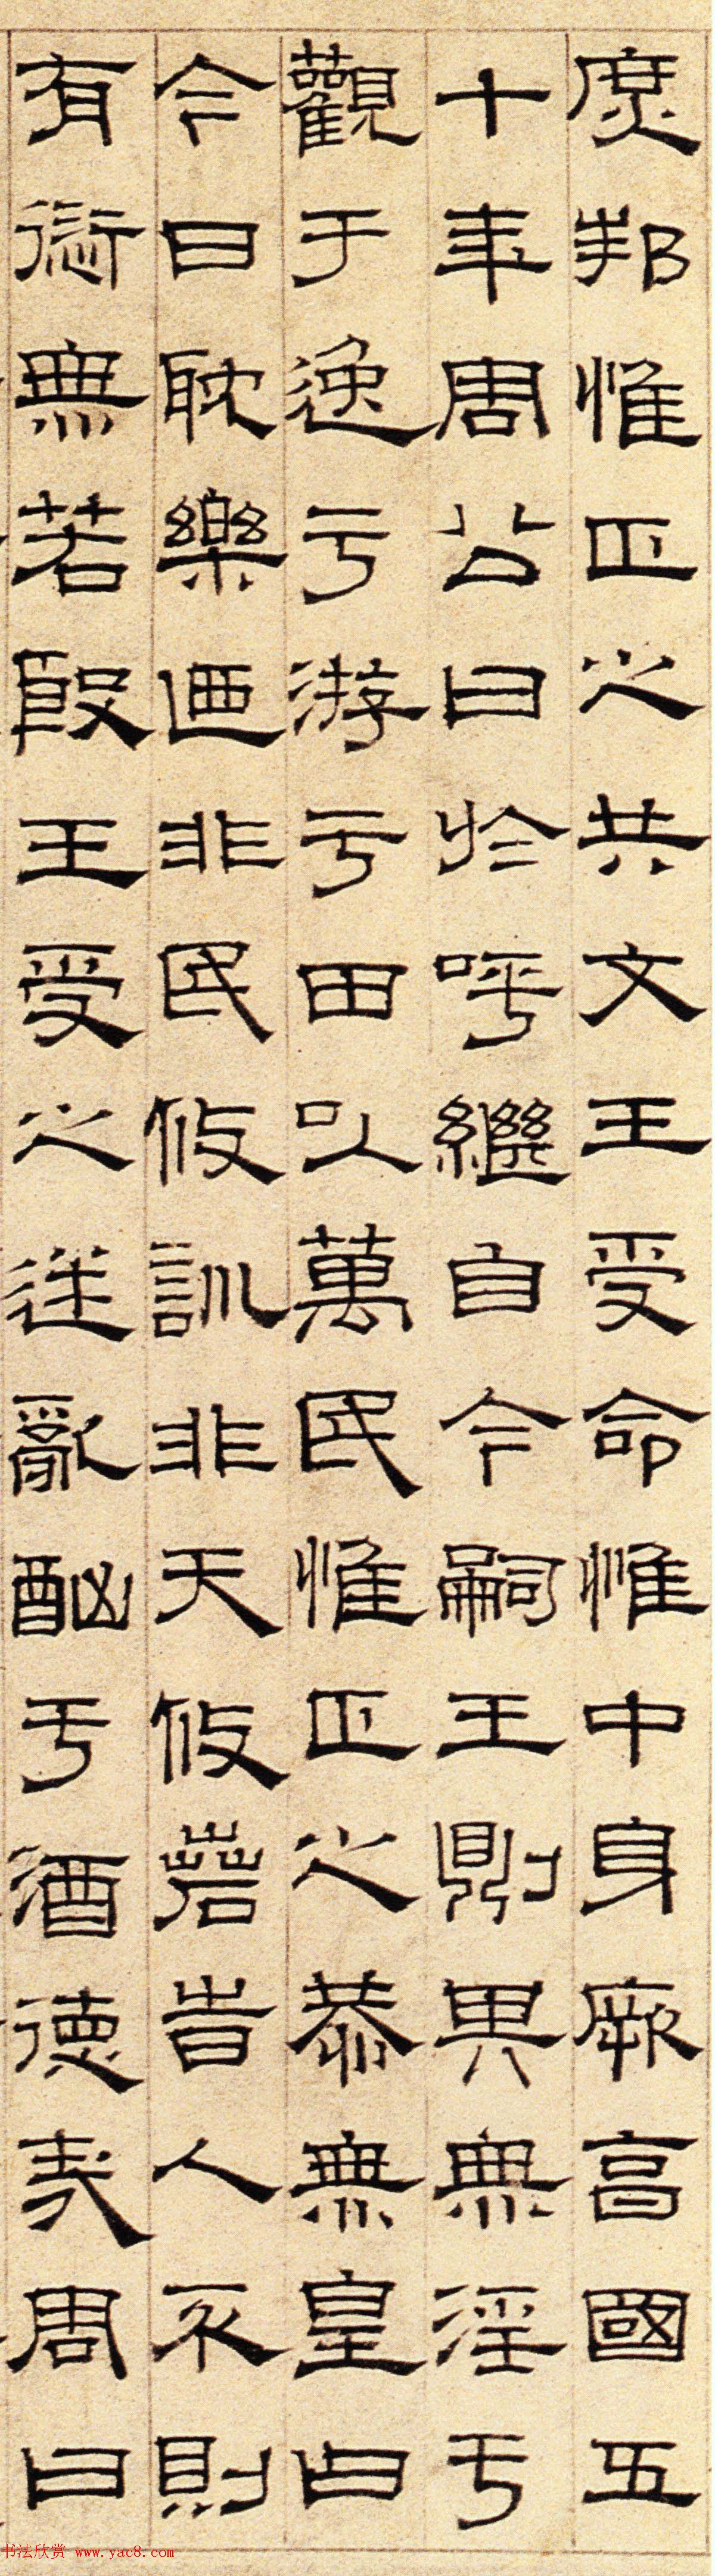 庶邦惟正之共文王受命惟中身厥亯國五
十年周公曰於呼繼自今嗣王則其無淫于
觀于逸亏游亏田以萬民惟正之恭無皇曰
今日耽樂迺非民攸訓非天攸若旹人丕則
有愆無若殷王受之迷亂酗于酒德哉周曰
书法欣赏 www.yac8.com